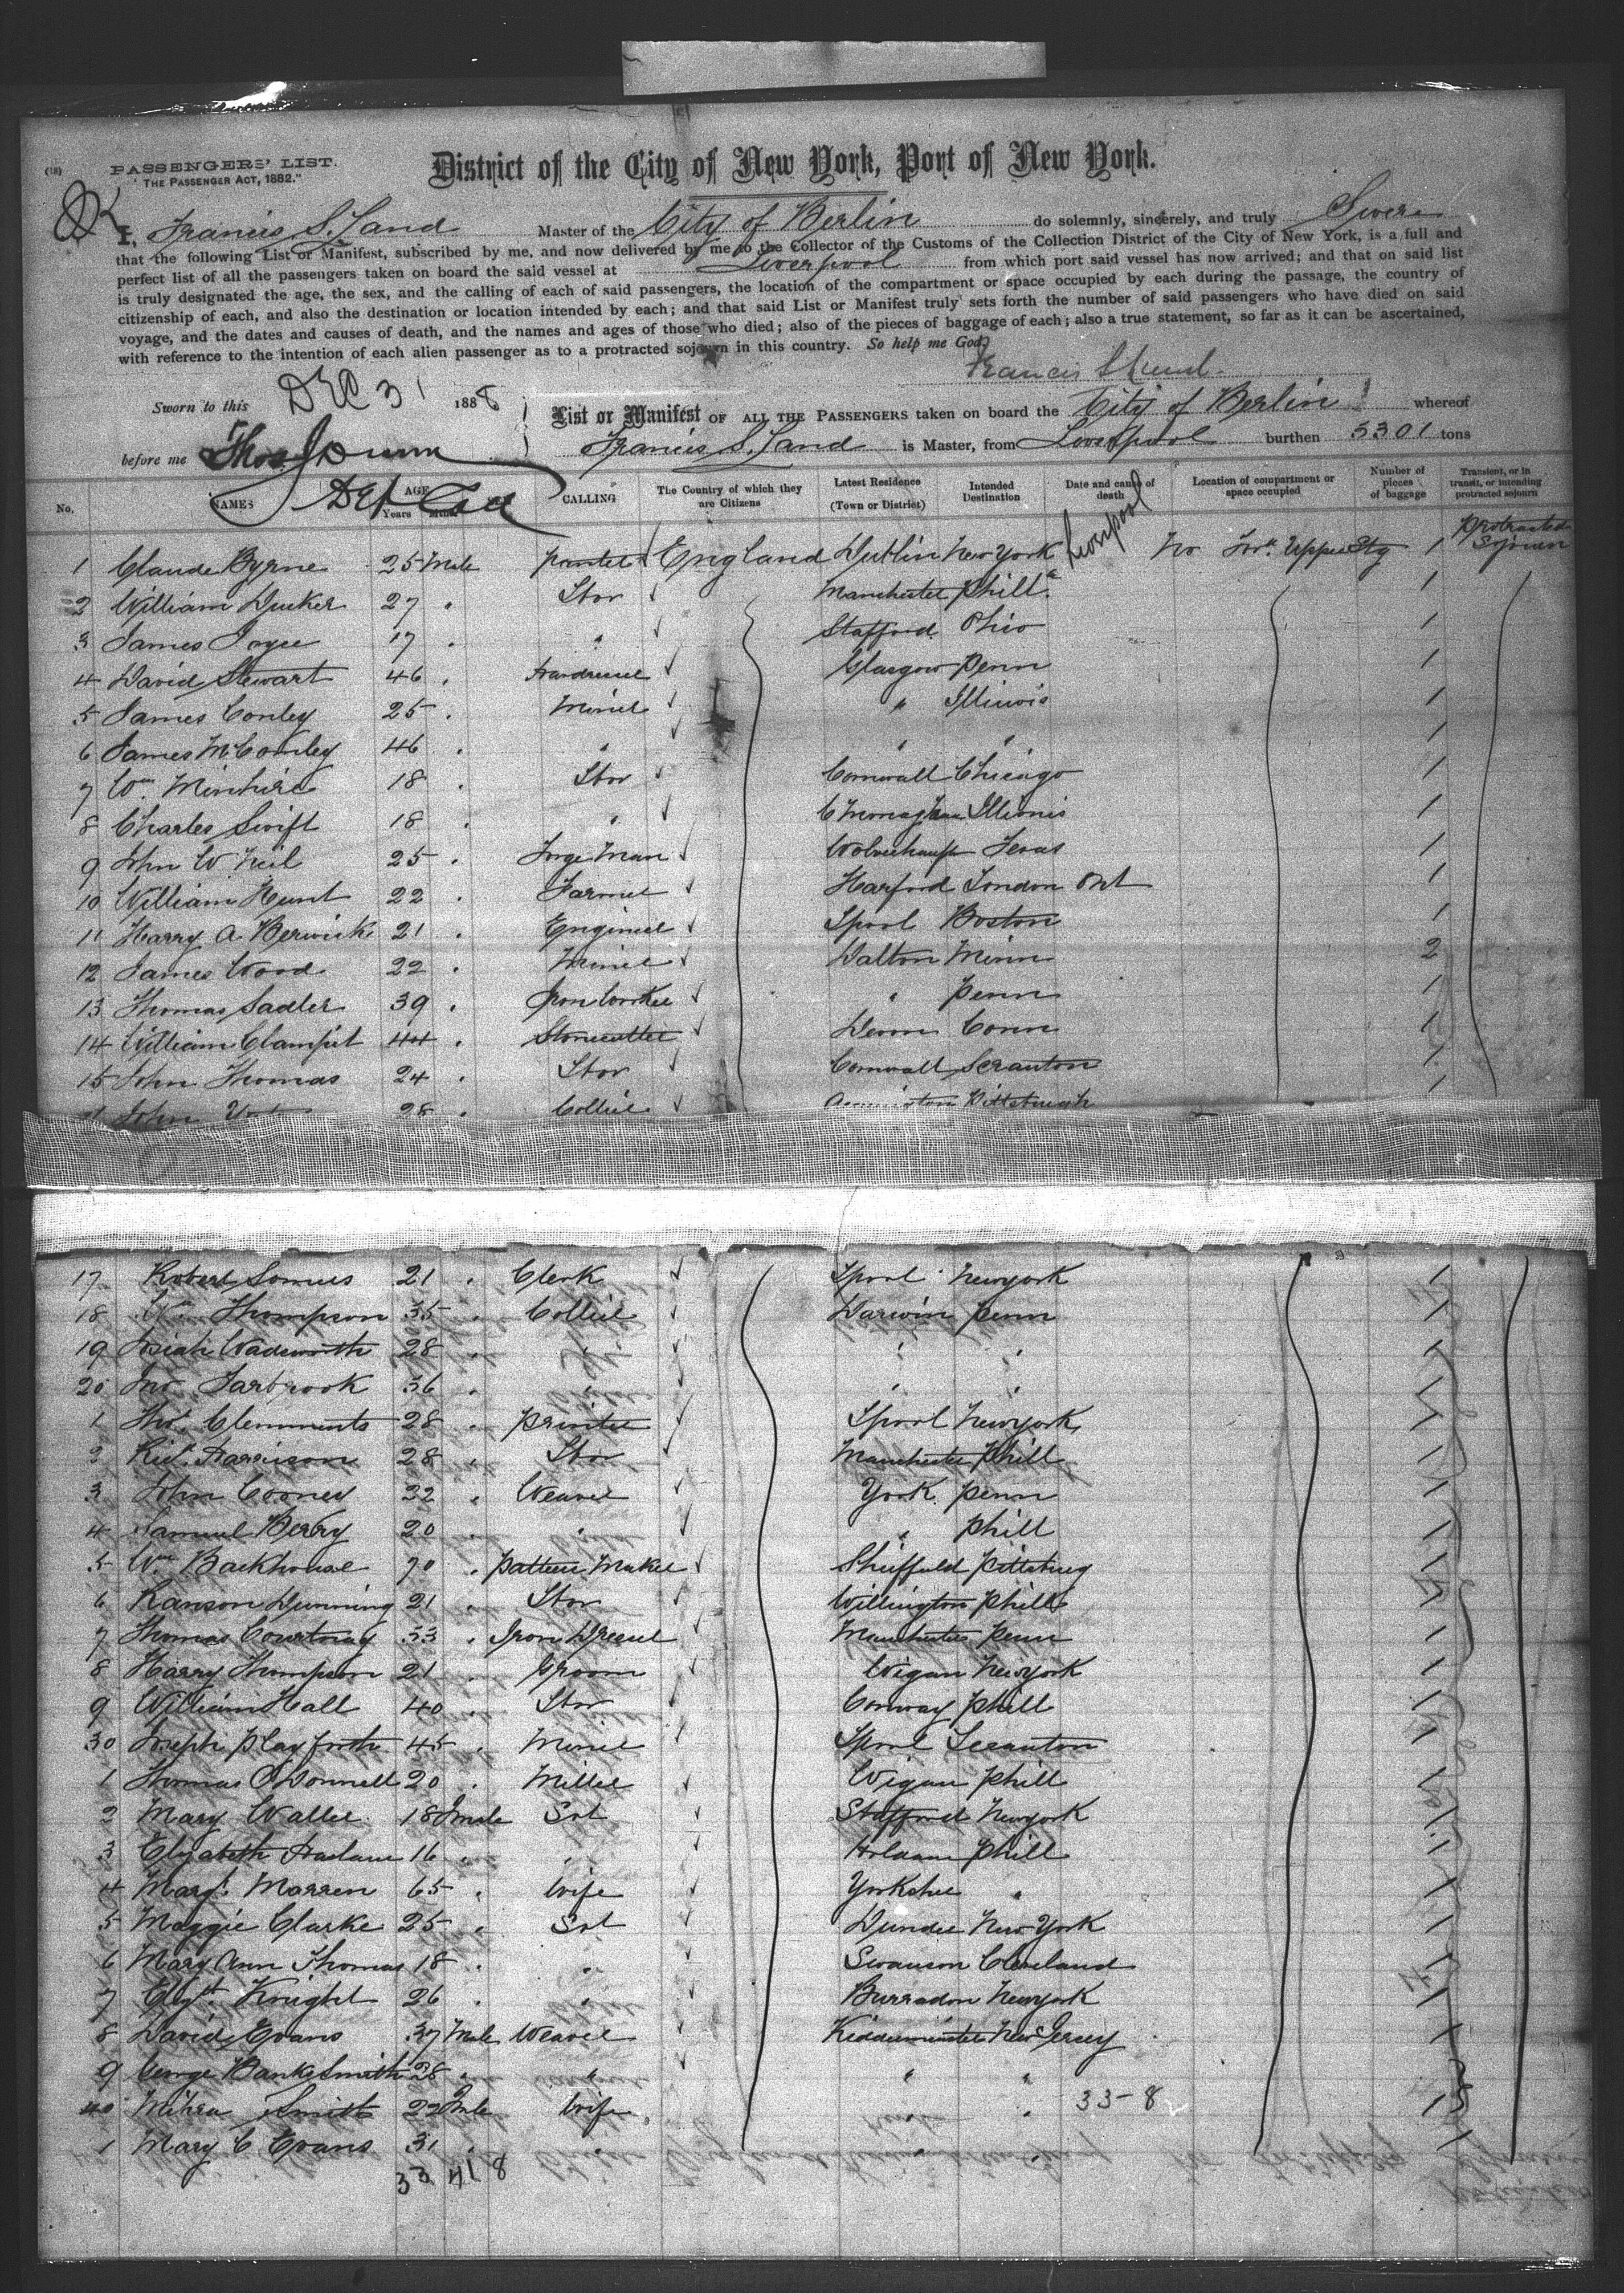 PASSENGERS' LIST.
"THE PASSENGER ACT, 1882."
District of the City of New York, Port of New York.
OK
I, Francis S. Land Master of the City of Berlin do solemnly, sincerely, and truly Swear
that the following List or Manifest, subscribed by me, and now delivered by me to the Collector of the Customs of the Collection District of the City of New York, is a full and
perfect list of all the passengers taken on board the said vessel at Liverpool from which port said vessel has now arrived; and that on said list
is truly designated the age, the sex, and the calling of each of said passengers, the location of the compartment or space occupied by each during the passage, the country of
citizenship of each, and also the destination or location intended by each; and that said List or Manifest truly sets forth the number of said passengers who have died on said
voyage, and the dates and causes of death, and the names and ages of those who died; also of the pieces of baggage of each; also a true statement, so far as it can be ascertained,
with reference to the intention of each alien passenger as to a protracted sojourn in this country. So help me God,
Francis S Land
Sworn to this DEC 31 1888
List or Manifest OF ALL THE PASSENGERS taken on board the City of Berlin whereof
before me Thos Dunn
Francis S. Land is Master, from Liverpool burthen 5301 tons
Dep Coll
No. NAMES AGE Years CALLING The Country of which they are Citizens Latest Residence (Town or District) Intended Destination Date and cause of death Location of compartment or space occupied Number of pieces of baggage Transient, or in transit, or intending protracted sojourn
1 Claude Byrne 25 Male England Dublin New York Liverpool No For Upper Stg 1 Protracted Sojourn
2 William Ducker 27 " Manchester Phill 1
3 James Joyce 17 " " Stafford Ohio 1
4 David Stewart 46 " Glasgow Penn 1
5 James Conley 25 " Miner " Illinois 1
6 James McConley 46 " " " " 1
7 Wm 18 " Cornwall Chicago 1
8 Charles Swift 18 " " Illionis 1
9 John W Neil 25 " Forge Man Texas 1
10 William Hunt 22 " Farmer Harford London Ont 1
11 Harry A Berwick 21 " Engineer Lpool Boston 1
12 James Wood 22 " Miner Dalton Minn 2
13 Thomas Sadler 39 " Iron Worker " Penn 1
14 William Clampit 44 " Stonecutter Devon Conn 1
15 John Thomas 24 " Cornwall Scranton 1
John 28 " Collier Pittsburgh 1
17 Robert 21 " Clerk Lpool New York 1
18 Wm Thompson 35 " Collier Darwin Penn 1
19 Josiah Wadsworth 28 " " " " 1
20 Jno Tarbrook 36 " " " " 1
1 Thos Clemments 28 " Printer Lpool New York 1
2 Richd Harrison 28 " Manchester Phill 1
3 John Cooney " Weaver York Penn 1
4 Samuel Berry 20 " " " Phill 1
5 Wm Backhouse " Pattern Maker Sheffield Pittsburg 1
6 Ranson Dunning 21 " Willington Phill 1
7 Thomas Courtnay 33 " Manchester Penn 1
8 Harry Thompson 21 " Groom Wigan New York 1
9 William Hall 40 " Conway Phill 1
30 Joseph Playforth 45 " Miner Lpool Scranton 1
1 Thomas O'Donnell 20 " Miller Wigan Phill 1
2 Mary Waller 18 Fmale Svt Stafford New York 1
3 Elizabeth 16 " " Phill 1
4 Margt Marren 65 " Wife Yorkshire " 1
5 Maggie Clarke 25 " Svt Dundee New York 1
6 Mary Ann Thomas 18 " " Swanson Cleveland 1
7 Elizth Knight 26 " " Burradon New York 1
8 David Evans 37 Male Weaver Kidderminster New Jersey 1
9 George Banks Smith 28 " " " " 3
40 Smith 22 Fmale Wife " " 33-8 1
1 Mary C Evans 31 " " " " 1
33 41 8